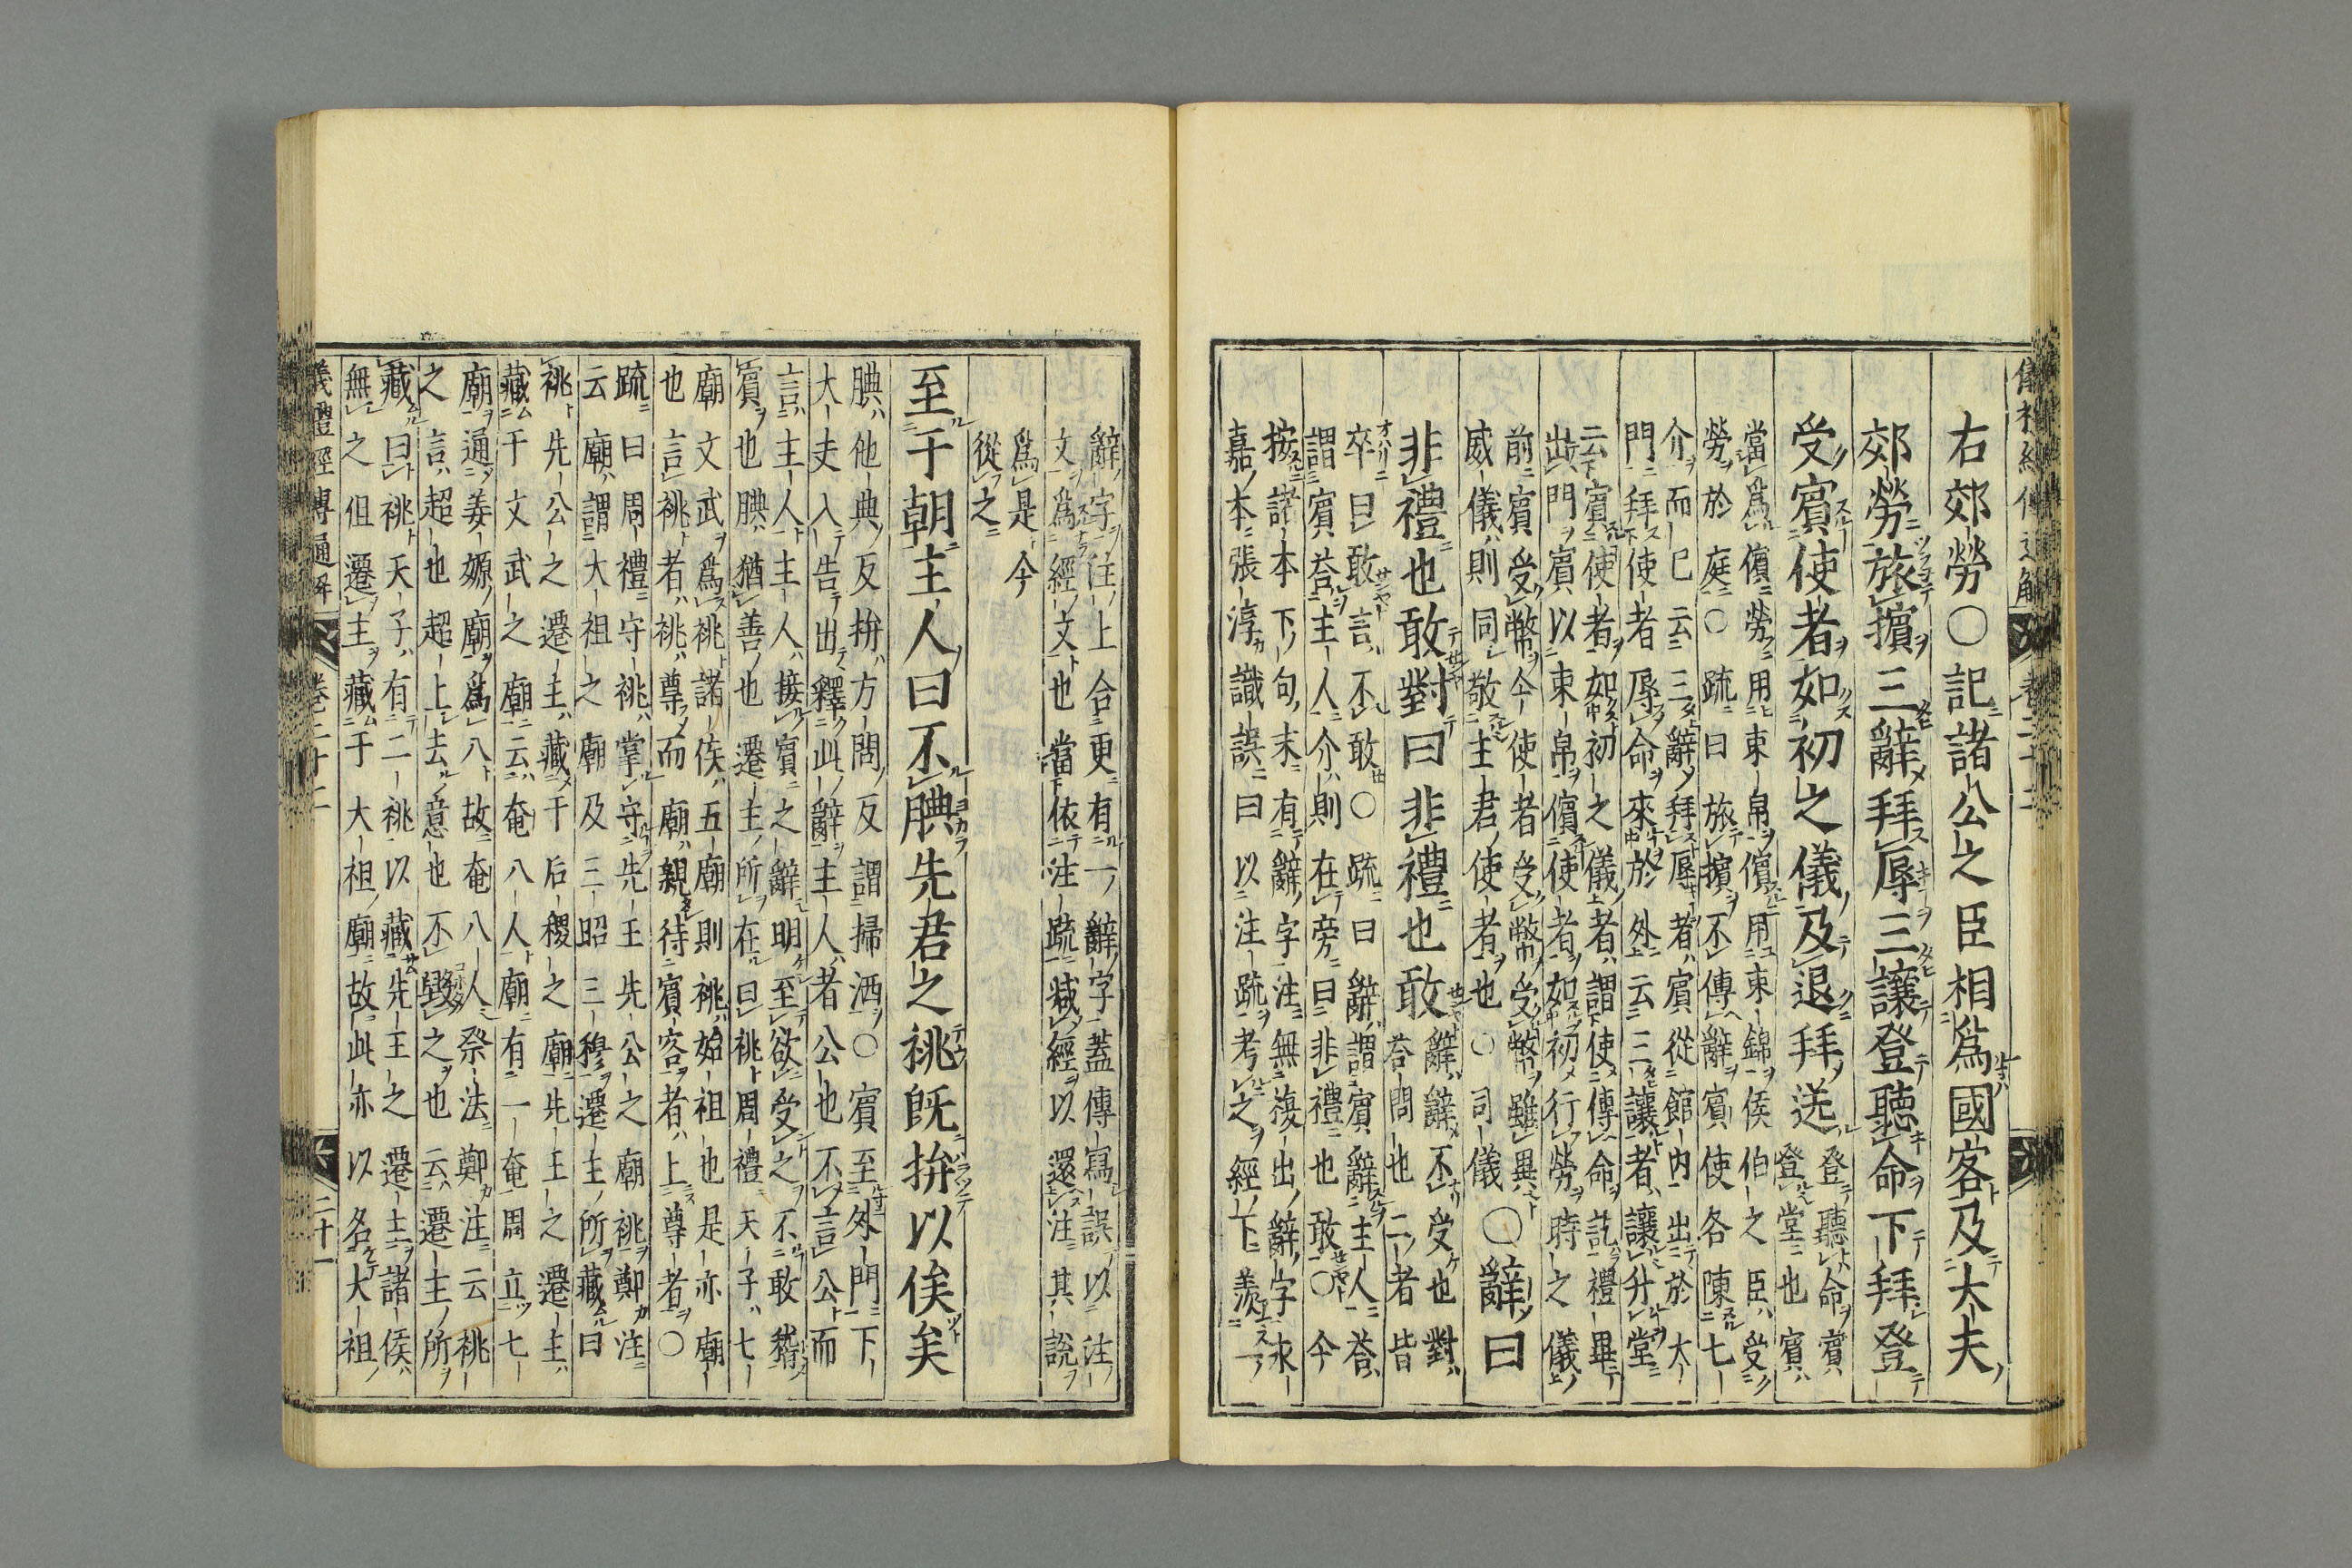 右郊勞○記諸公之臣相爲國客及大夫
郊勞旅擯三辭拜辱三讓登聽命下拜登
受賓使者如初之儀及退拜送
登聽命賓
登堂也賓
當爲儐勞用束帛儐用束錦侯伯之臣受
勞於庭○疏曰旅擯不傳辭賓使各陳七
介而已云三辭拜辱者賓從館內出於大
門拜使者辱命來於外云三讓者讓升堂
云賓使者如初之儀者謂使傳命訖禮畢
出門賓以束帛儐使者如初行勞時之儀
前賓受幣今使者受幣受幣雖異
威儀則同敬主君使者也○司儀
○辭曰
非禮也敢對曰非禮也敢
辭辭不受也對
荅問也二者皆
卒曰敢言不敢○疏曰辭謂賓辭主人荅
謂賓荅主人介則在旁曰非禮也敢○今
按諸本下句末有辭字注無復出辭字永
嘉本張淳識誤曰以注疏考之經下羨一
辭字注上合更有一辭字蓋傳寫誤以注
文爲經文也當依注疏减經以還注其說
爲是今
從之
至于朝主人曰不腆先君之祧既拚以俟矣
腆他典反拚方問反謂掃洒○賓至外門下
大夫入告出釋此辭主人者公也不言公而
言主人主人接賓之辭明至欲受之不敢稽
賓也腆猶善也遷主所在曰祧周禮天子七
廟文武爲祧諸侯五廟則祧始祖也是亦廟
也言祧者祧尊而廟親待賓客者上尊者○
疏曰周禮守祧掌守先王先公之廟祧鄭注
云廟謂大祖之廟及三昭三穆遷主所藏曰
祧先公之遷主藏于后稷之廟先王之遷主
藏于文武之廟云奄八人廟有一奄周立七
廟通姜嫄廟爲八故奄八人祭法鄭注云祧
之言超也超上去意也不毀之也云遷主所
藏曰祧天子有二祧以藏先王之遷主諸侯
無之但遷主藏于大祖廟故此亦以名大祖
儀禮經傳通解 卷二十二 二十一